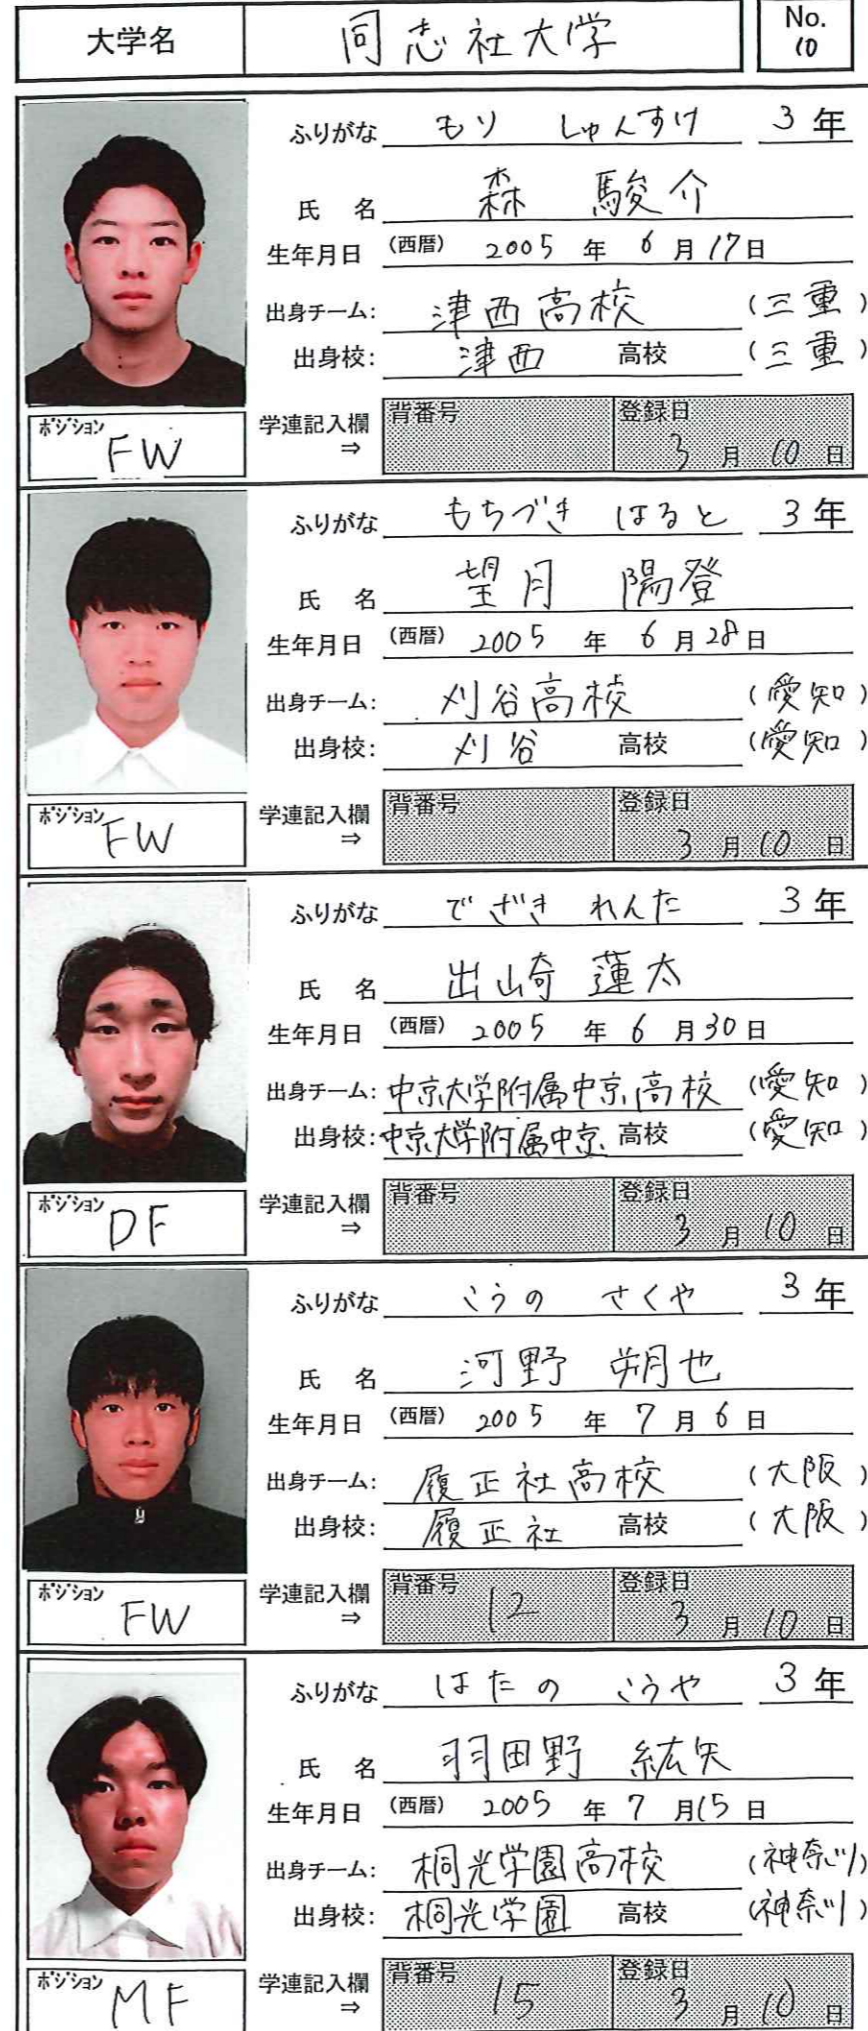 大学名 同志社大学 No. 10
ふりがな もり しゅんすけ 3年
氏 名 森 駿介
生年月日 (西暦) 2005 年 6 月 17 日
出身チーム: 津西高校 (三重)
出身校: 津西 高校 (三重)
ポジション FW 学連記入欄 ⇒ 背番号 登録日 3 月 10 日
ふりがな もちづき はると 3年
氏 名 望月 陽登
生年月日 (西暦) 2005 年 6 月 28 日
出身チーム: 刈谷高校 (愛知)
出身校: 刈谷 高校 (愛知)
ポジション FW 学連記入欄 ⇒ 背番号 登録日 3 月 10 日
ふりがな でざき れんた 3年
氏 名 出崎 蓮太
生年月日 (西暦) 2005 年 6 月 30 日
出身チーム: 中京大学附属中京高校 (愛知)
出身校: 中京大学附属中京 高校 (愛知)
ポジション DF 学連記入欄 ⇒ 背番号 登録日 3 月 10 日
ふりがな こうの さくや 3年
氏 名 河野 朔也
生年月日 (西暦) 2005 年 7 月 6 日
出身チーム: 履正社高校 (大阪)
出身校: 履正社 高校 (大阪)
ポジション FW 学連記入欄 ⇒ 背番号 12 登録日 3 月 10 日
ふりがな はたの こうや 3年
氏 名 羽田野 紘矢
生年月日 (西暦) 2005 年 7 月 15 日
出身チーム: 桐光学園高校 (神奈川)
出身校: 桐光学園 高校 (神奈川)
ポジション MF 学連記入欄 ⇒ 背番号 15 登録日 3 月 10 日